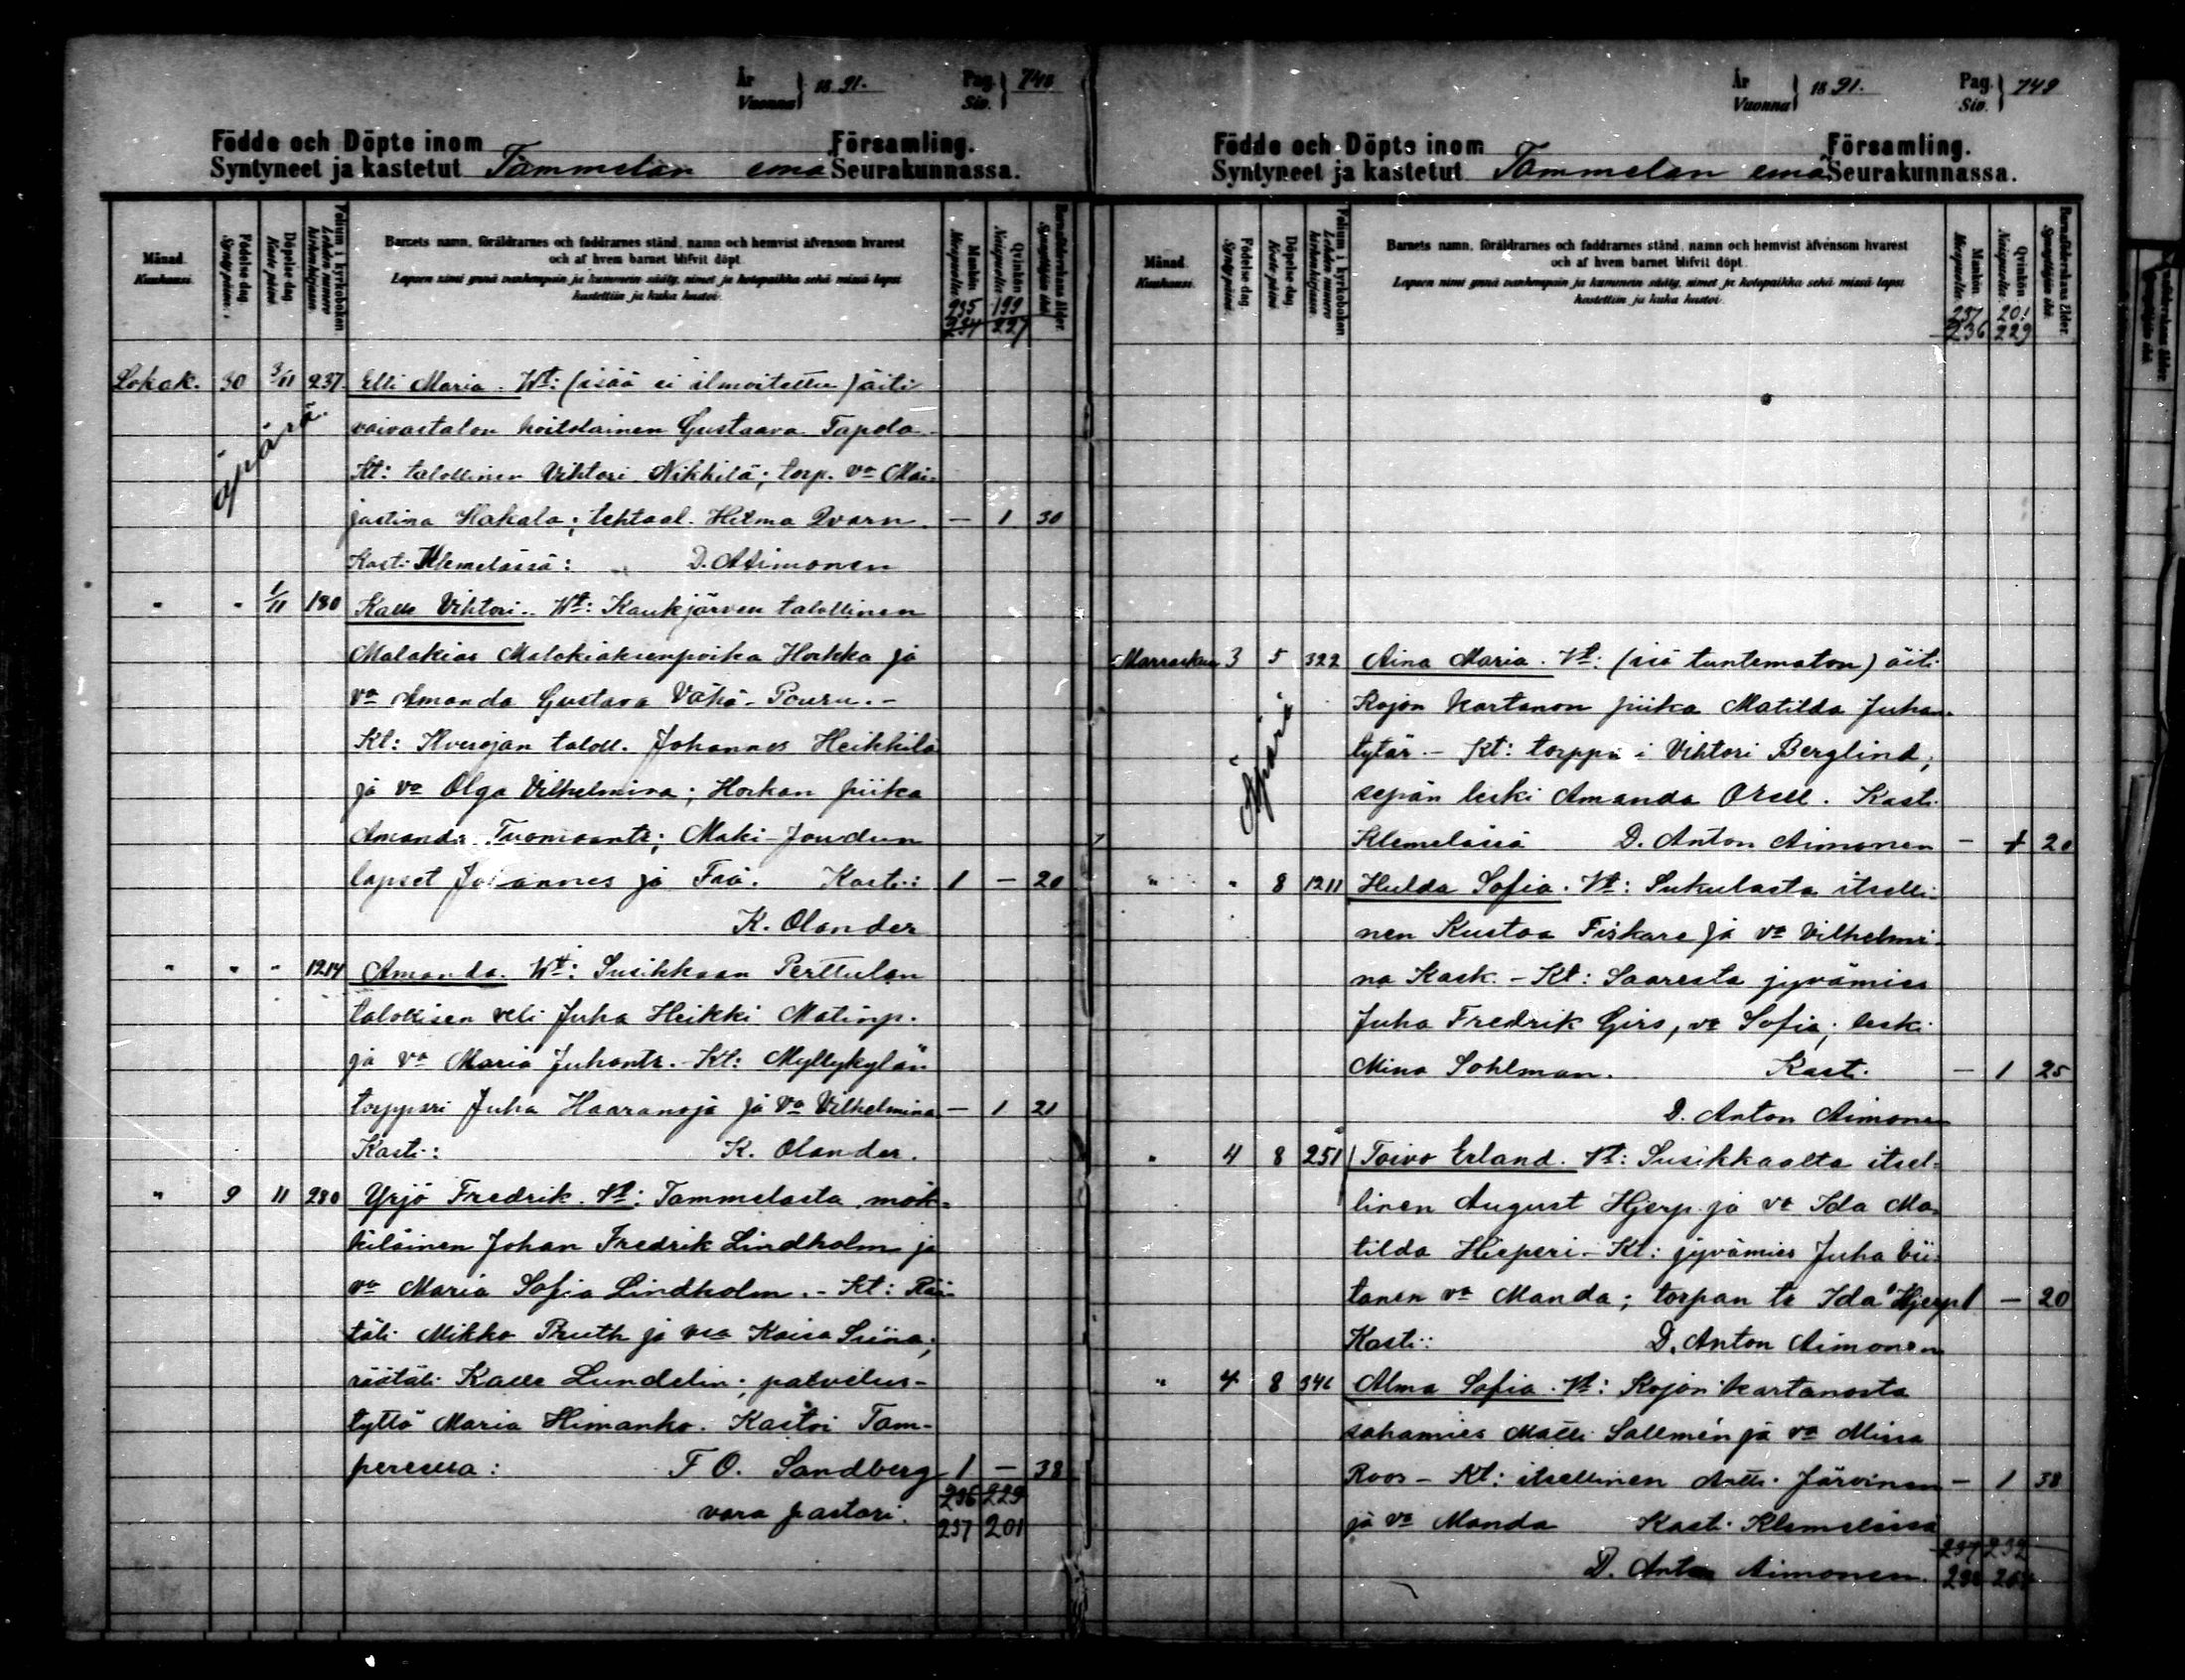 År Vuonna } 1891. Pag. Siv. } 748
Födde och Döpte inom Församling.
Syntyneet ja kastetut Tammelan emä Seurakunnassa.
Månad. Kuukausi.
Födelse dag. Syntypäivä.
Döpelse dag. Kaste päivä
Folium i kyrkoboken. Lehden numero kirkonkirjassa.
Barnets namn, föräldrarnes och faddrarnes stånd, namn och hemvist äfvensom hvarest
och af hvem barnet blifvit döpt.
Lapsen nimi ynnä vanhempain ja kummein sääty, nimet ja kotopaikka sekä missä lapsi
kastettiin ja kuka kastoi.
Mankön Miespuolia.
Qvinkön Naispuolia.
Barnaföderskans ålder. Synnyttäjän ikä.
235 199
234 227
Lokak. 30 3/11 237. Elli Maria. Wt: (isää ei ilmoitettu) äiti
Äpärä
vaivastalon hoitolainen Gustaava Tapola
Kt: talollinen Vihtori Nikkilä; torp. va Mai-
jastina Hakala; tehtaal. Hilma Qvarn. — 1 30
Kasti Klemelässä: D. A Aimonen
" " 1/11 180 Kalle Vihtori. Wt: Kaukjärven talollinen
Malakias Malakiaksenpoika Horkka ja
va Amanda Gustava Vähä-Pouru. –
Kt: Kverojan taloll. Johannes Heikkilä
ja va Olga Vilhelmina; Horkan piika
Amanda Tuomaantr; Maki-Joudun
lapset Johannes ja Fiia. Kasti: 1 — 20
K. Olander
" " " 1214 Amanda. Wt: Susikkaan Perttulan
talokisen veli Juha Heikki Matinp.
ja va Maria Juhantr. – Kt: Myllykylän
torppari Juha Haaranoja ja va Vilhelmina — 1 21
Kasti: K. Olander.
" 9 11 280 Yrjö Fredrik. Vt: Tammelasta mök-
kiläinen Johan Fredrik Lindholm ja
va Maria Sofia Lindholm. – Kt: Rää-
täli Mikko Pruth ja va Kaisa Siina;
räätäli Kalle Lundelin; palvelus-
tyttö Maria Himanko. Kastoi Tam-
pereella: F O. Sandberg 1 — 38
vara pastori.
236 229
237 201
År Vuonna } 1891. Pag. Siv. } 749
Födde och Döpte inom Församling.
Syntyneet ja kastetut Tammelan emä Seurakunnassa.
Månad. Kuukausi.
Födelse dag. Syntypäivä.
Döpelse dag. Kaste päivä
Folium i kyrkoboken. Lehden numero kirkonkirjassa.
Barnets namn, föräldrarnes och faddrarnes stånd, namn och hemvist äfvensom hvarest
och af hvem barnet blifvit döpt.
Lapsen nimi ynnä vanhempain ja kummein sääty, nimet ja kotopaikka sekä missä lapsi
kastettiin ja kuka kastoi.
Mankön Miespuolia.
Qvinkön Naispuolia.
Barnaföderskans ålder. Synnyttäjän ikä.
237 201
236 229
Marraskuu 3 5 322 Aina Maria. Vt: (isä tuntematon) äiti
Äpärä
Kojon kartanon piika Matilda Juhan-
tytär. – Kt: torppari Vihtori Berglind;
sepän leski Amanda Orell. Kasti
Klemelässä D. Anton Aimonen — 1 20
" " 8 1211 Hulda Sofia. Vt: Sukulasta itselli-
nen Kustaa Fiskare ja va Vilhelmi-
na Kask. – Kt: Saaresta jyvämies
Juha Fredrik Girs, va Sofia; leski
Mina Sohlman. Kasti — 1 25
D. Anton Aimonen
" 4 8 251 Toivo Erland. Vt: Susikkaalta itsel-
linen August Hjerp ja va Ida Ma-
tilda Hieperi – Kt: jyvämies Juha Lii-
tanen va Manda; torpan tr Ida Hjerp 1 — 20
Kasti: D. Anton Aimonen
" 4 8 346 Alma Sofia. Vt: Kojon kartanosta
sahamies Matti Sallmén ja va Miina
Roos – Kt: itsellinen Antti Järvinen — 1 38
ja va Manda Kasti Klemelässä
237 232
D. Anton Aimonen.